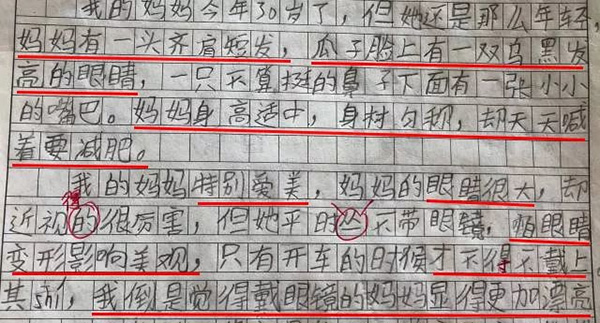 我的妈妈今年30岁了，但她还是那么年轻，
妈妈有一头齐肩短发，瓜子脸上有一双乌黑发
亮的眼睛，一只不算挺的鼻子下面有一张小小
的嘴巴。妈妈身高适中，身材匀称，却天天喊
着要减肥。
我的妈妈特别爱美，妈妈的眼睛很大，却
得
近视的很厉害，但她平时不带眼镜，怕眼睛
变形影响美观，只有开车的时候才不得不戴上
其shí，我倒是觉得戴眼镜的妈妈显得更加漂亮